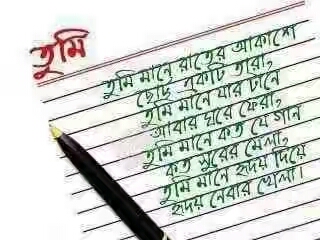 তুমি
তুমি মানে রাতের আকাশে
ছোট্ট একটি তারা,
তুমি মানে যার টানে
আবার ঘরে ফেরা,
তুমি মানে কত যে গান
কত সুরের মেলা,
তুমি মানে হৃদয় দিয়ে
হৃদয় নেবার খেলা।